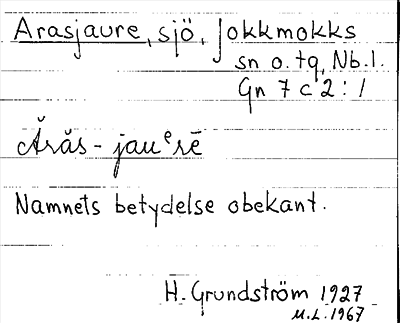 Arasjaure, sjö, Jokkmokks
sn o. tg, Nb.l.
Gn 7 c 2 : 1
Ărăs - jauᵉrē
Namnets betydelse obekant.
H. Grundström 1927
M.L. 1967